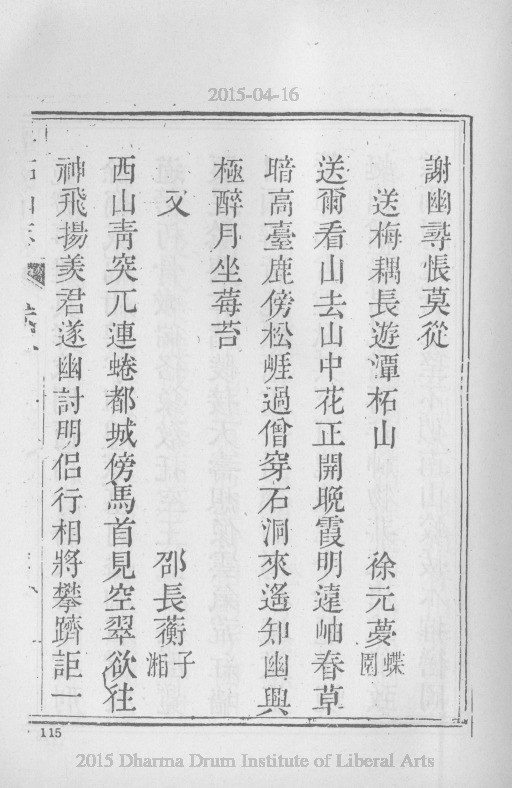 2015-04-16
謝幽尋悵莫從
送梅耦長遊潭柘山 徐元夢 蝶園
送爾看山去山中花正開晚霞明遠岫春草
暗高臺鹿傍松崕過僧穿石洞來遙知幽興
極醉月坐莓苔
又 邵長蘅 子湘
西山靑突兀連蜷都城傍馬首見空翠欲往
神飛揚羨君遂幽討明侶行相將攀躋詎一
115
2015 Dharma Drum Institute of Liberal Arts